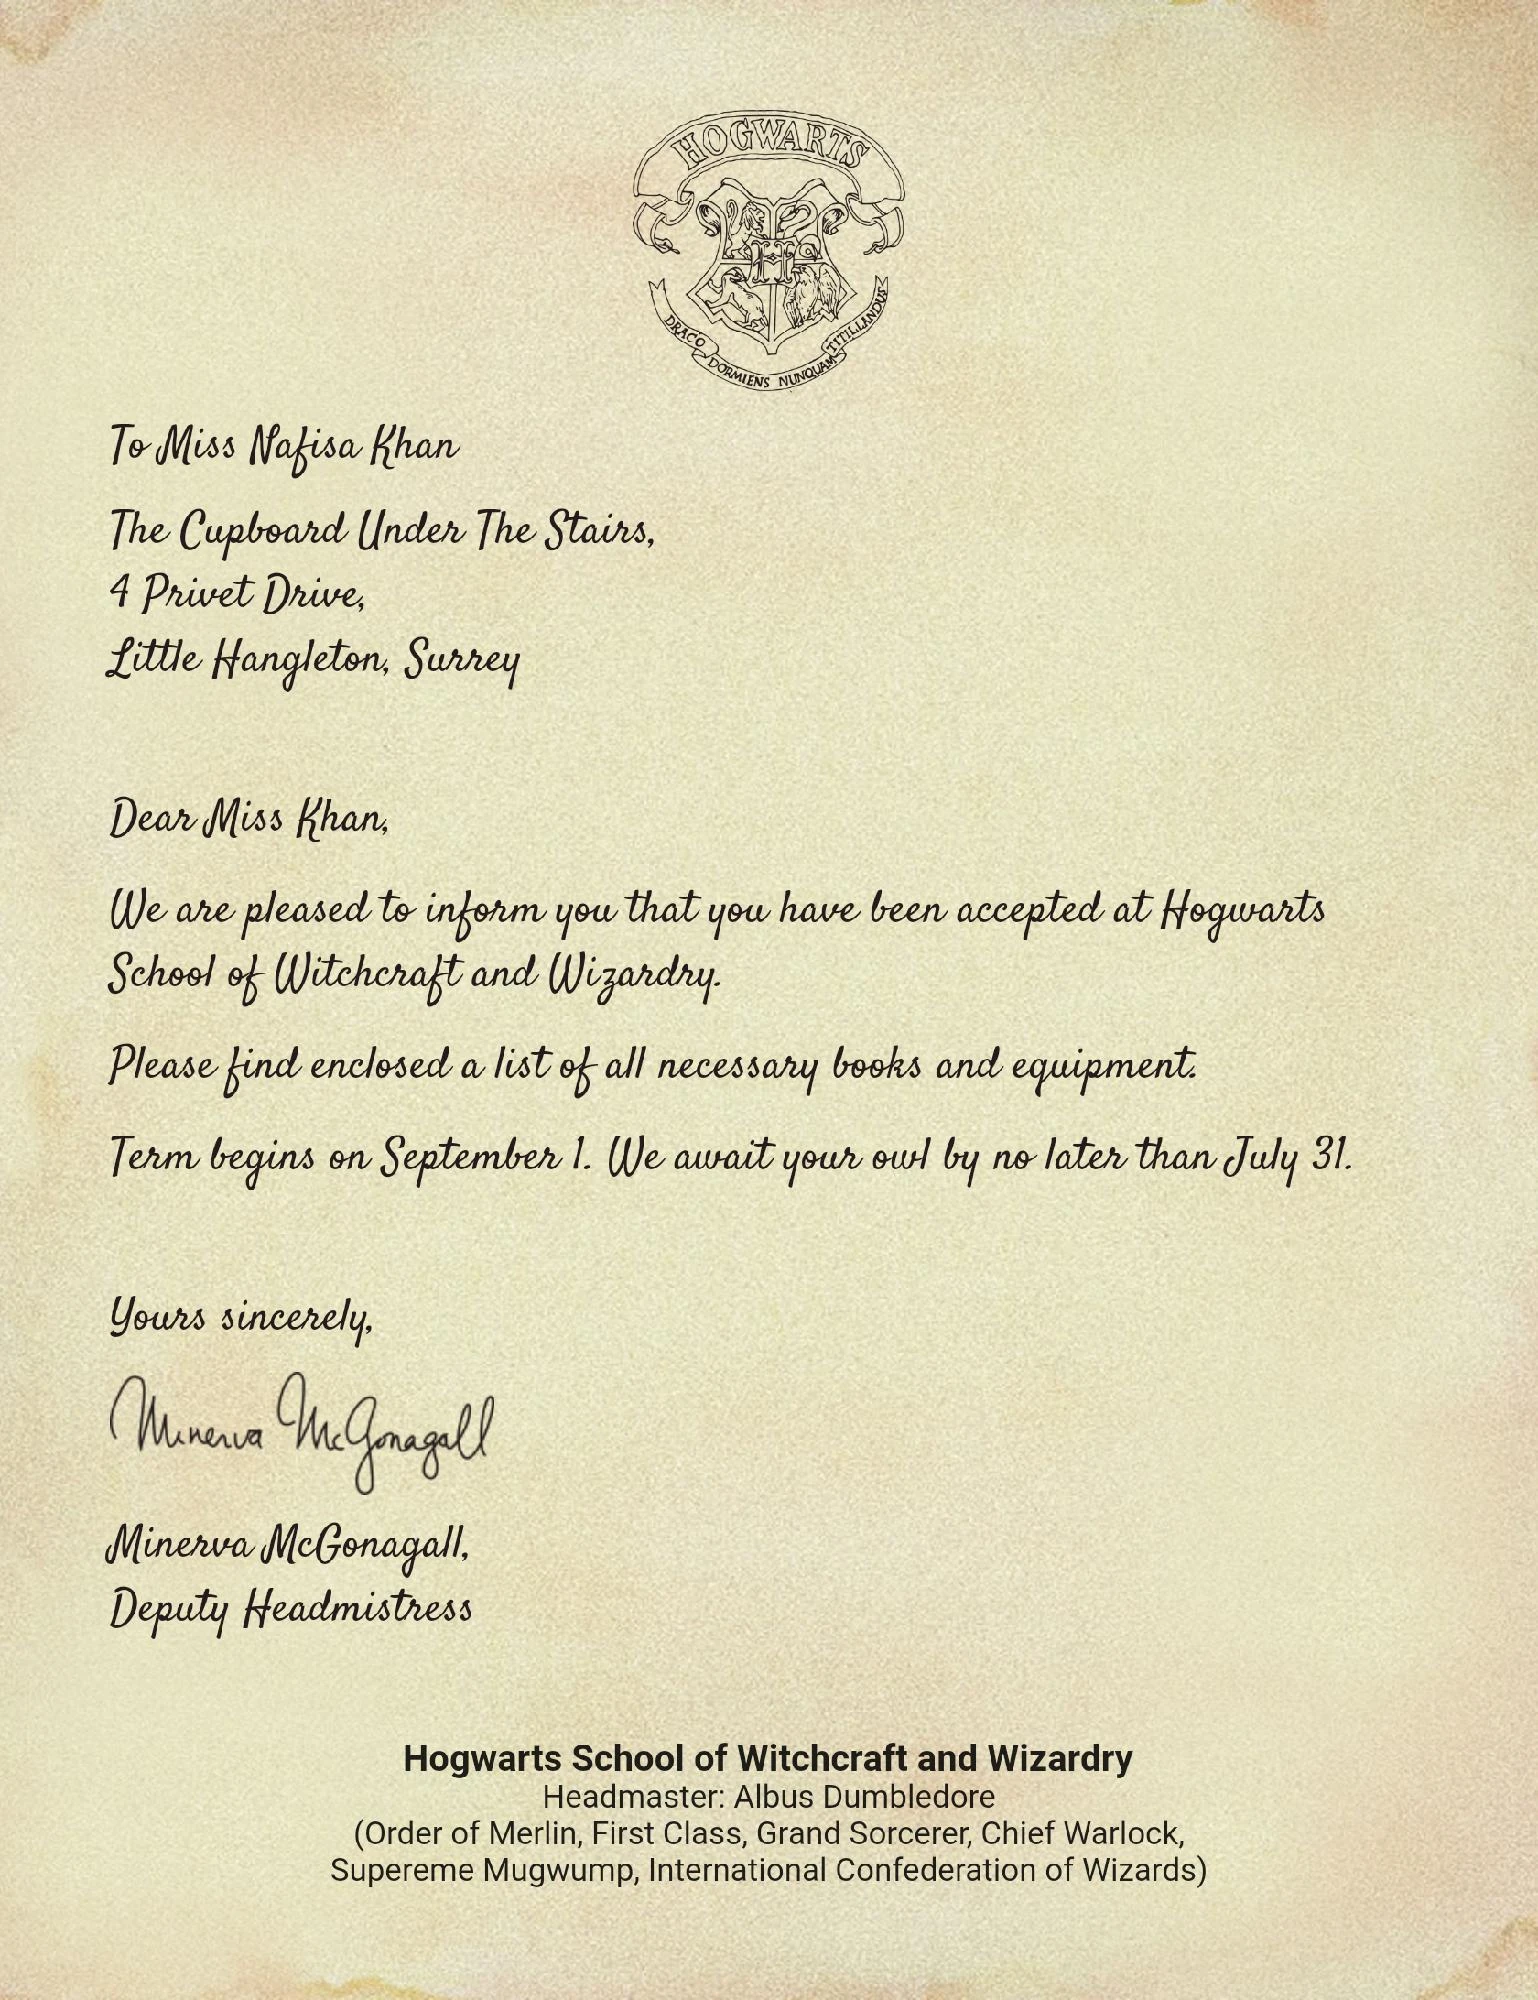 HOGWARTS
H
DRACO DORMIENS NUNQUAM TITILLANDUS
To Miss Nafisa Khan
The Cupboard Under The Stairs,
4 Privet Drive,
Little Hangleton, Surrey
Dear Miss Khan,
We are pleased to inform you that you have been accepted at Hogwarts
School of Witchcraft and Wizardry.
Please find enclosed a list of all necessary books and equipment.
Term begins on September 1. We await your owl by no later than July 31.
Yours sincerely,
Minerva McGonagall
Minerva McGonagall,
Deputy Headmistress
Hogwarts School of Witchcraft and Wizardry
Headmaster: Albus Dumbledore
(Order of Merlin, First Class, Grand Sorcerer, Chief Warlock,
Supereme Mugwump, International Confederation of Wizards)